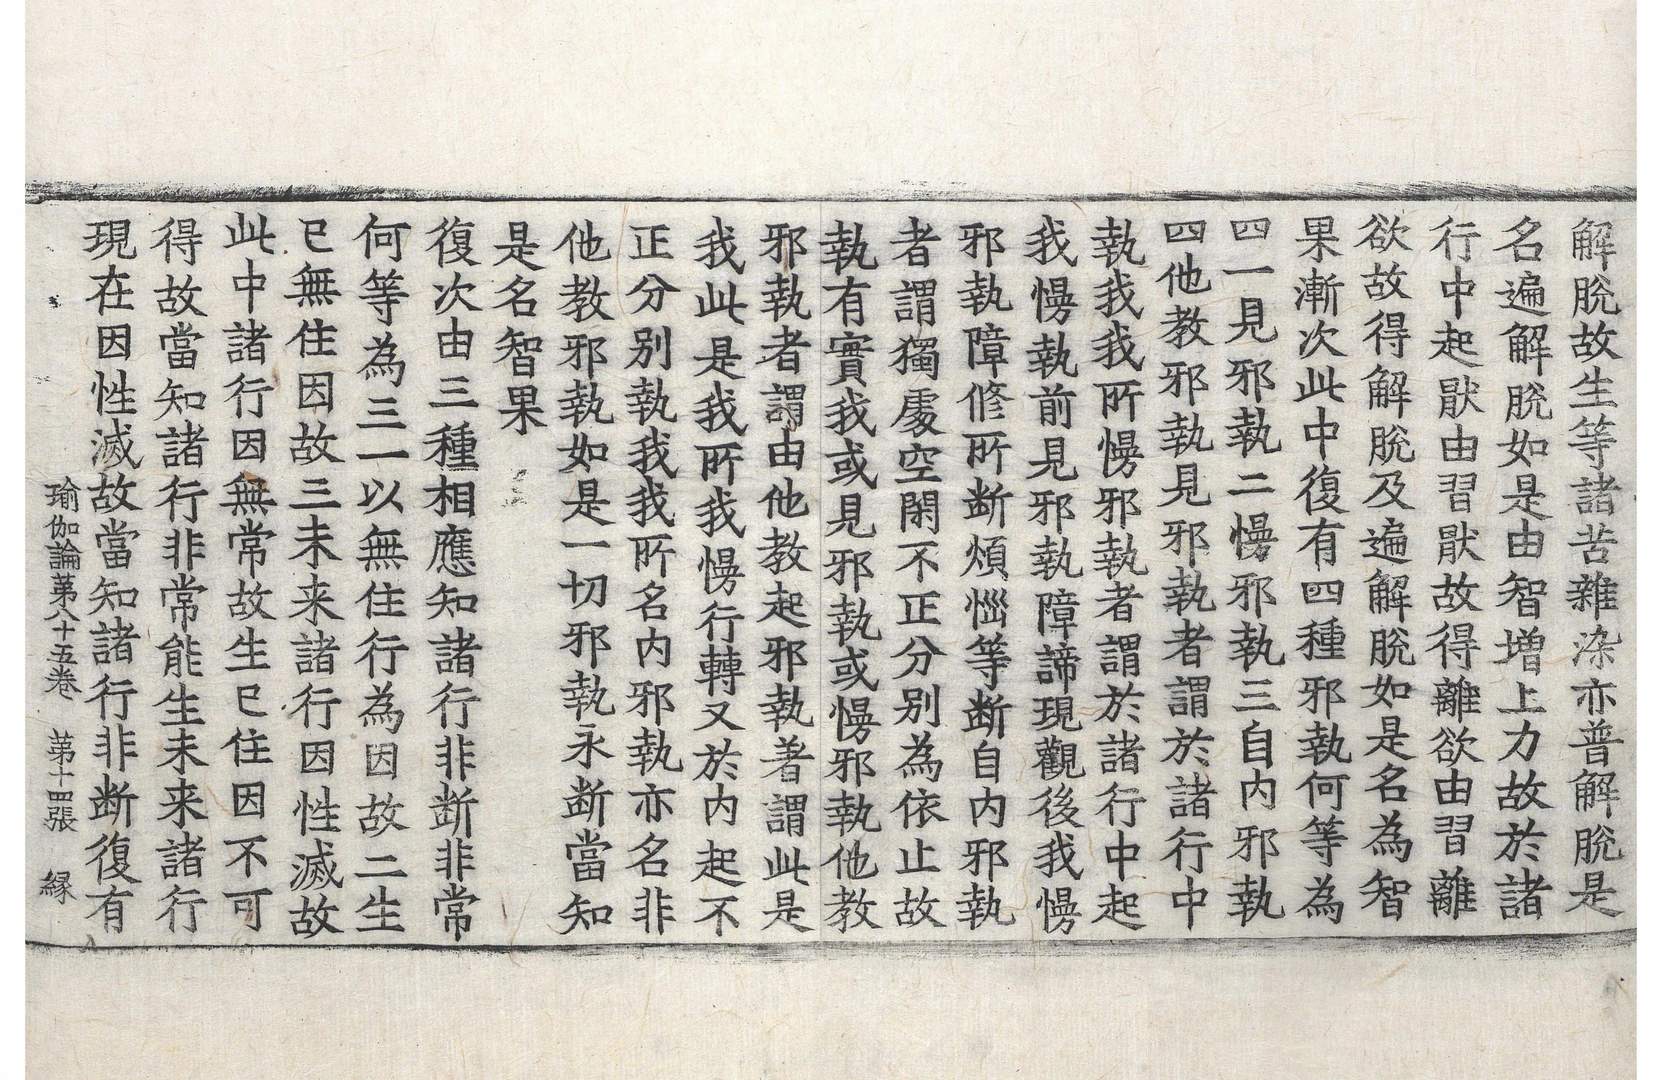 解脫故生等諸苦雜染亦普解脫是
名遍解脫如是由智增上力故於諸
行中起猒由習猒故得離欲由習離
欲故得解脫及遍解脫如是名為智
果漸次此中復有四種邪執何等為
四一見邪執二慢邪執三自內邪執
四他教邪執見邪執者謂於諸行中
執我我所慢邪執者謂於諸行中起
我慢執前見邪執障諦現觀後我慢
邪執障修所斷煩惱等斷自內邪執
者謂獨處空閑不正分別為依止故
執有實我或見邪執或慢邪執他教
邪執者謂由他教起邪執著謂此是
我此是我所我慢行轉又於內起不
正分別執我我所名內邪執亦名非
他教邪執如是一切邪執永斷當知
是名智果
復次由三種相應知諸行非斷非常
何等為三一以無住行為因故二生
已無住因故三未来諸行因性滅故
此中諸行因無常故生已住因不可
得故當知諸行非常能生未来諸行
現在因性滅故當知諸行非斷復有
瑜伽論第八十五卷　第十四張　縁